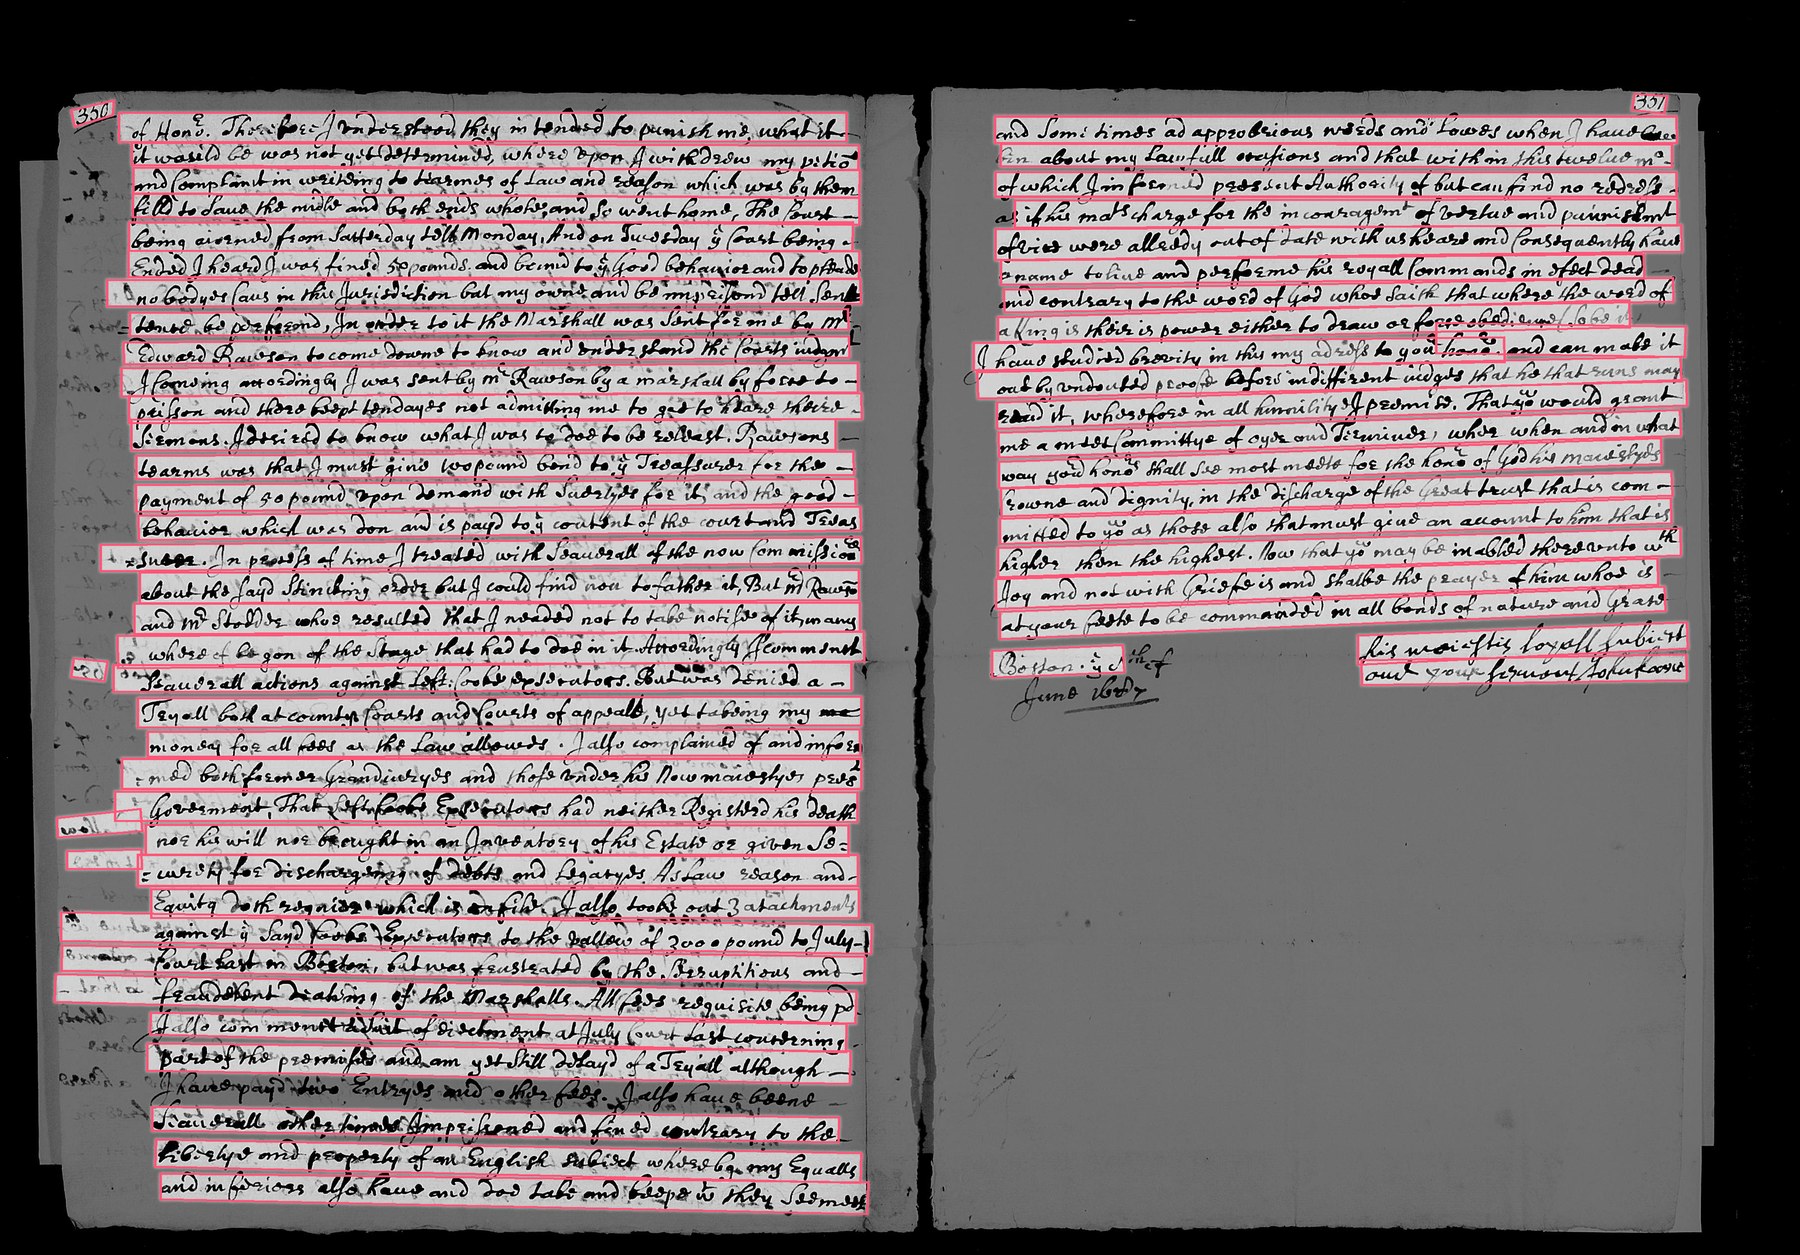 350
of Honr. Therefore J vnderstood they intended to punish me, what it
it would be was not yet determined, where vpon J withdrew my petiō
and Complant in writeing to tearmes of Law and reason which was by them
filld to Saue the midle and both ends whole, and So went home, The Court
being aiorned from Satterday tell Monday, And on Tuesday ye Court being
Ended J heard J was fined 50 pounds and bound to ye Good behavior and to pleade
no bodyes Caus in this Jurisdiction but my owne and be imprisond tell Sen
tence be performd, In order to it the Marshall was Sent for me by Mr
Edward Rawson to come downe to know and vnderstand the Courts iudgmt
J comeing accordingly J was sent by mr Rawson by a marshall by force to
prisson and there keept ten dayes not admitting me to goe to heare theire
Sermons. J desired to know what J was to doe to be releast. Rawsons
tearms was that J must giue 100 pound bond to ye Treassurer for the
payment of 50 pound vpon demand with Suertyes for it, and the good
behavior which was don and is payd to ye content of the court and Treas
surer. In process of time J treated with Seauerall of the now Commissioers
about the sayd Sentencing order but J could find non to father it, But mr Rawsō
and Mr Stodder whoe resulted that J needed not to take notise of it, many
where of be gon of the Stage that had to doe in it. Accordingly J comenct
Seauerall actions against Left: Cooke Exsecutors. But was denied a
Tryall both at county Courts and Courts of appeale, yet takeing my
money for all fees as the Law allowes. J also complained of and infor
med both former Grandiuryes and those vnder his Now maiestyes prest
Goverment, That Left Cooke Exsecutors had neither Registerd his death
nor his will nor brought in an Jnventory of his Estate or given Se=
=curety for dischargeing of debts and Legacyes As Law reason and
Equity doth requier which is on file. J also tooke out 3 atachments
against ye Sayd Cooke Exsecutors to the vallew of 2000 pound to July
Court Last in Boston, but was frustrated by the Serruptitious and
fraudelent dealeing of the Marshalls. All fees requisite being pd
J also commenct a suit of eiectment at July Court Last concerning
part of the premises and am yet still delayd of a Tryall although
J haue payd two Entryes and other fees. J also haue beene
Seauerall other times Jmprissoned and fined contrary to the
libertye and property of an English subiect whereby my Equalls
and inferiors also haue and doe take and keepe wt they Seemeet
351
and Some times ad approbrious words and Lowes when J haue
bin about my Lawfull ocasions and that with in this twelue mo
of which J informed present Authority of but can find no redress
as if his mats charge for the incouragemt of vertue and punnishmt
of vice were allredy out of date with us heare and Consequently haue
a name to liue and performe his royall Commands in efect dead
and contrary to the word of God whoe Saith that where the word of
a King is their is power either to draw or force obedience
J haue studied brevity in this my adress to your honrs and can make it
out by vndouted proofe before indifferent iudges that he that runs may
read it, wherefore in all humility J premise. That yo would grant
me a meet Committye of oyer and Terminer, wher when and in what
way your honrs shall See most meete for the honr of God his maiestyes
Crowne and dignity, in the discharge of the Great trust that is com
mitted to yo as those also that must giue an account to him that is
higher then the highest. Now that yo may be inabled therevnto wth
Joy and not with Griefe is and shalbe the prayer of him whoe is
at your feete to be commanded in all bonds of nature and Grace
his maiestis loyall subiect
and your seruant
Boston. ye 8th of
June 1687